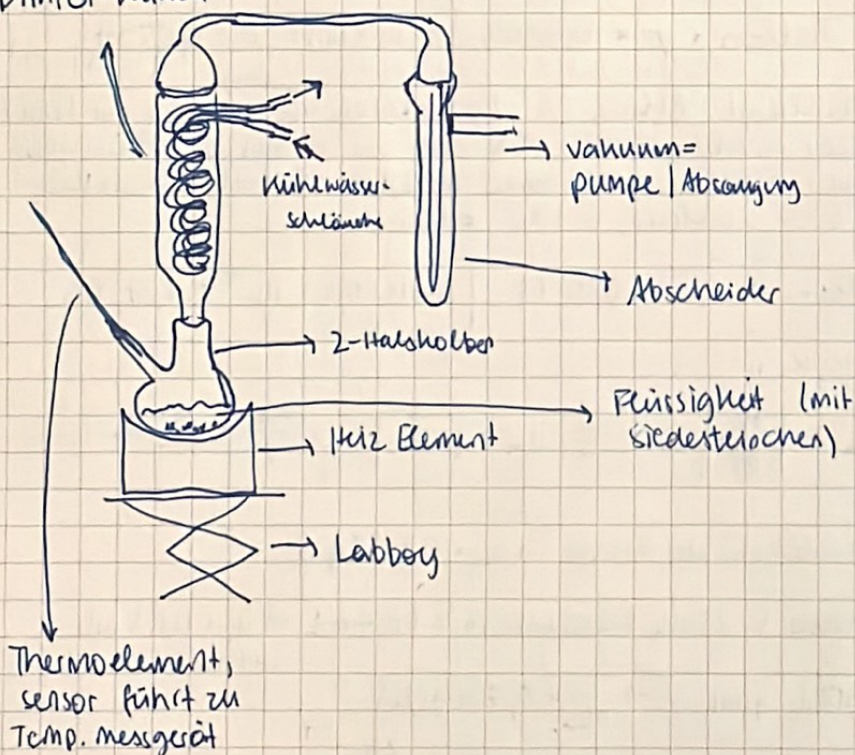 Kühlwasser-
schläuche
→ Vakuum=
pumpe | Absaugung
Abscheider
2-Halskolben
Flüssigkeit (mit
Siedesteinchen)
Heiz Element
Labboy
Thermoelement,
sensor führt zu
Temp. messgerät